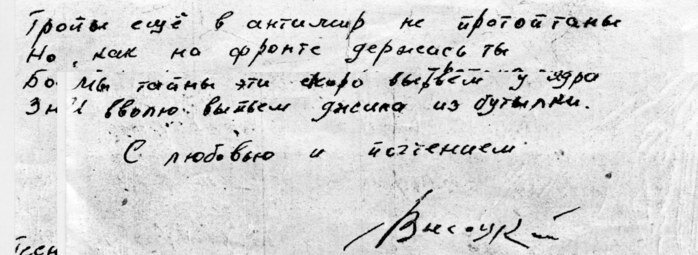 Тропы ещё в антимир не протоптаны
Но, как на фронте держись ты
Бо мы тайны эти скоро вырвем у ядра
Зн И вволю выпьем джина из бутылки.
С любовью и почтением
Высоцкий